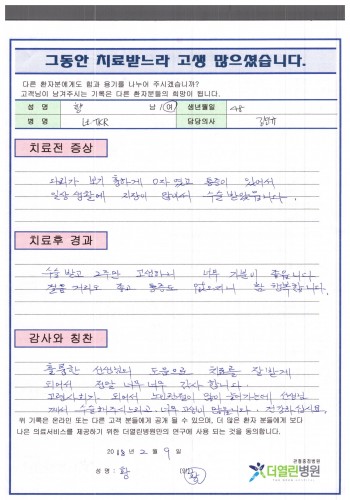 그동안 치료받느라 고생 많으셨습니다.
다른 환자분에게도 힘과 용기를 나누어 주시겠습니까?
고객님이 남겨주시는 기록은 다른 환자분들의 희망이 됩니다.
성 명 황 남 / 여 생년월일 48
병 명 Lt. TKR 담당의사
치료전 증상
다리가 보기 흉하게 O자였고 통증이 있어서
일상 생활에 지장이 많아서 수술 받았습니다.
치료후 경과
수술 받고 2주만 고생하니 너무 기분이 좋습니다
걸음 거리도 좋고 통증도 없으니 참 행복합니다.
감사와 칭찬
훌륭한 선생님의 도움으로 치료를 잘 받게
되어서 정말 너무 너무 감사 합니다.
고령사회가 되어서 노인환자들이 많이 늘어가는데 선생님
께서 수술해주시느라고 너무 고생이 많습니다. 건강하십시요.
위 기록은 온라인 또는 다른 고객 분들에게 공개 될 수 있으며, 더 많은 환자 분들에게 보다
나은 의료서비스를 제공하기 위한 더열린병원만의 연구에 사용 되는 것을 동의합니다.
2018 년 2 월 9 일
성 명 : 황
관절중점병원
더열린병원